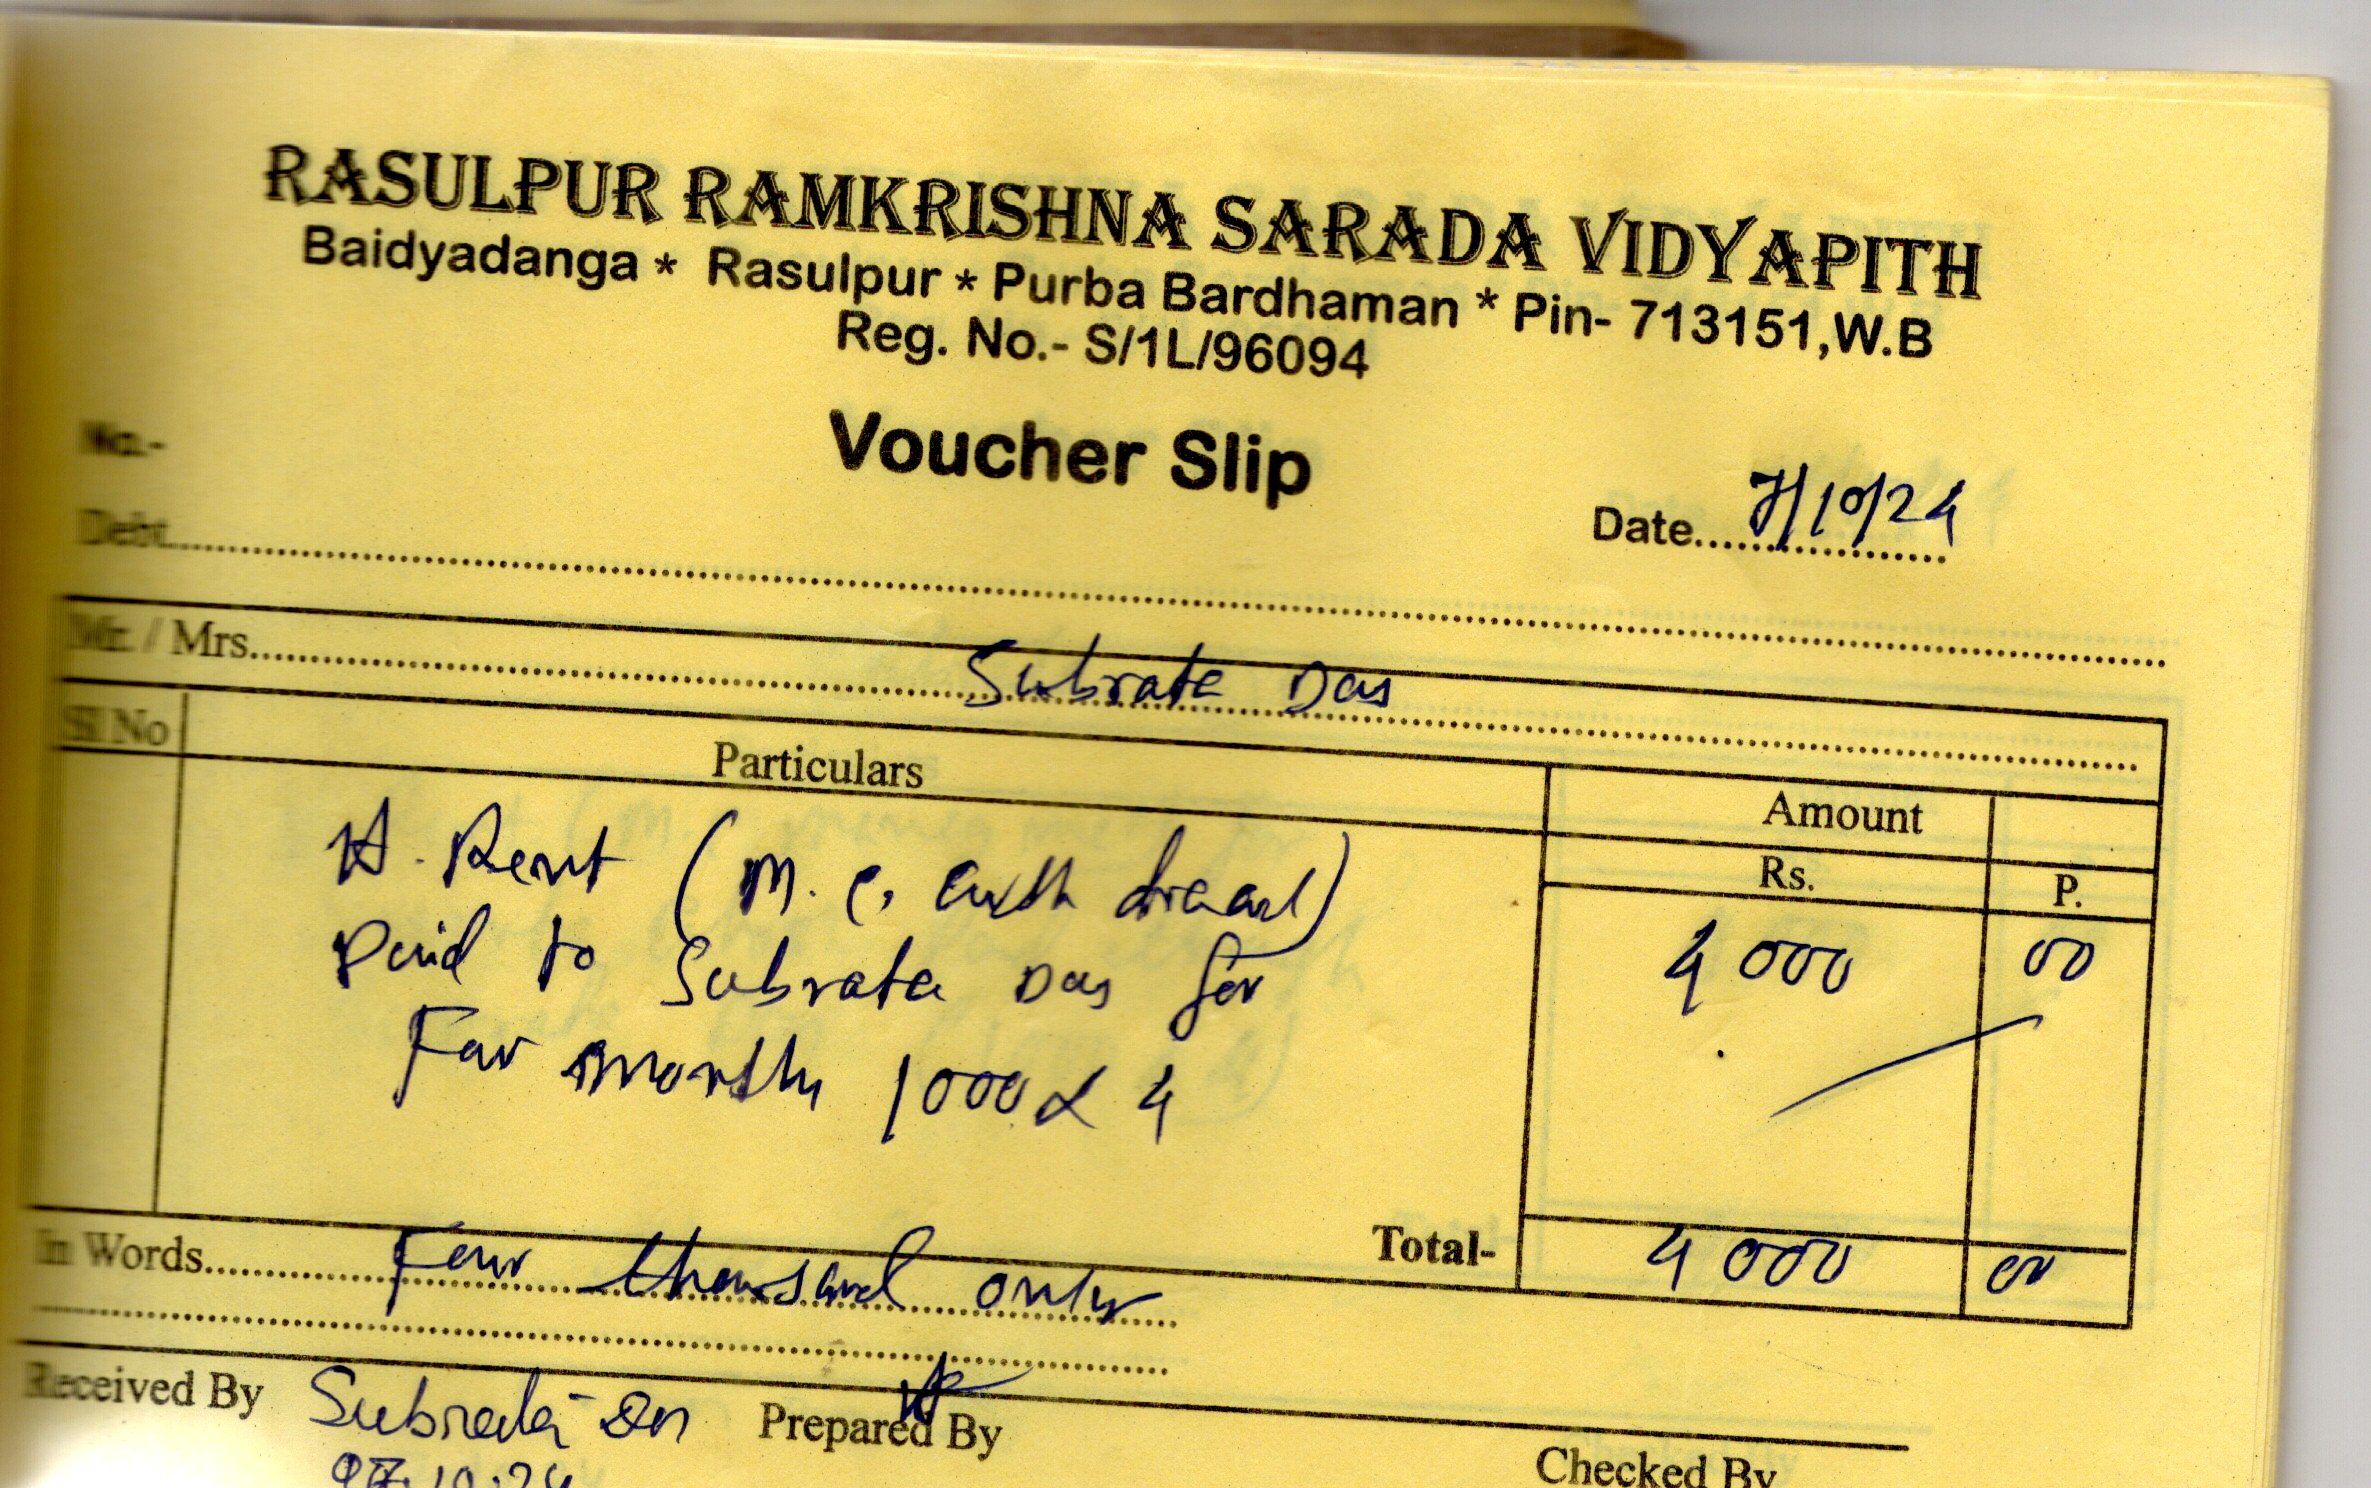 RASULPUR RAMKRISHNA SARADA VIDYAPITH
Baidyadanga * Rasulpur * Purba Bardhaman * Pin- 713151,W.B
Reg. No.- S/1L/96094
Voucher Slip
No.-
Date 7/10/24
Debt
Mr. / Mrs. Subrata Das
Sl No Particulars Amount
Rs. P.
H. Rent (M. C.
Paid to Subrata Das for 4000 00
Four months 1000 x 4
Total- 4000 00
In Words Four thousand only
Received By Subrata Das Prepared By
Checked By